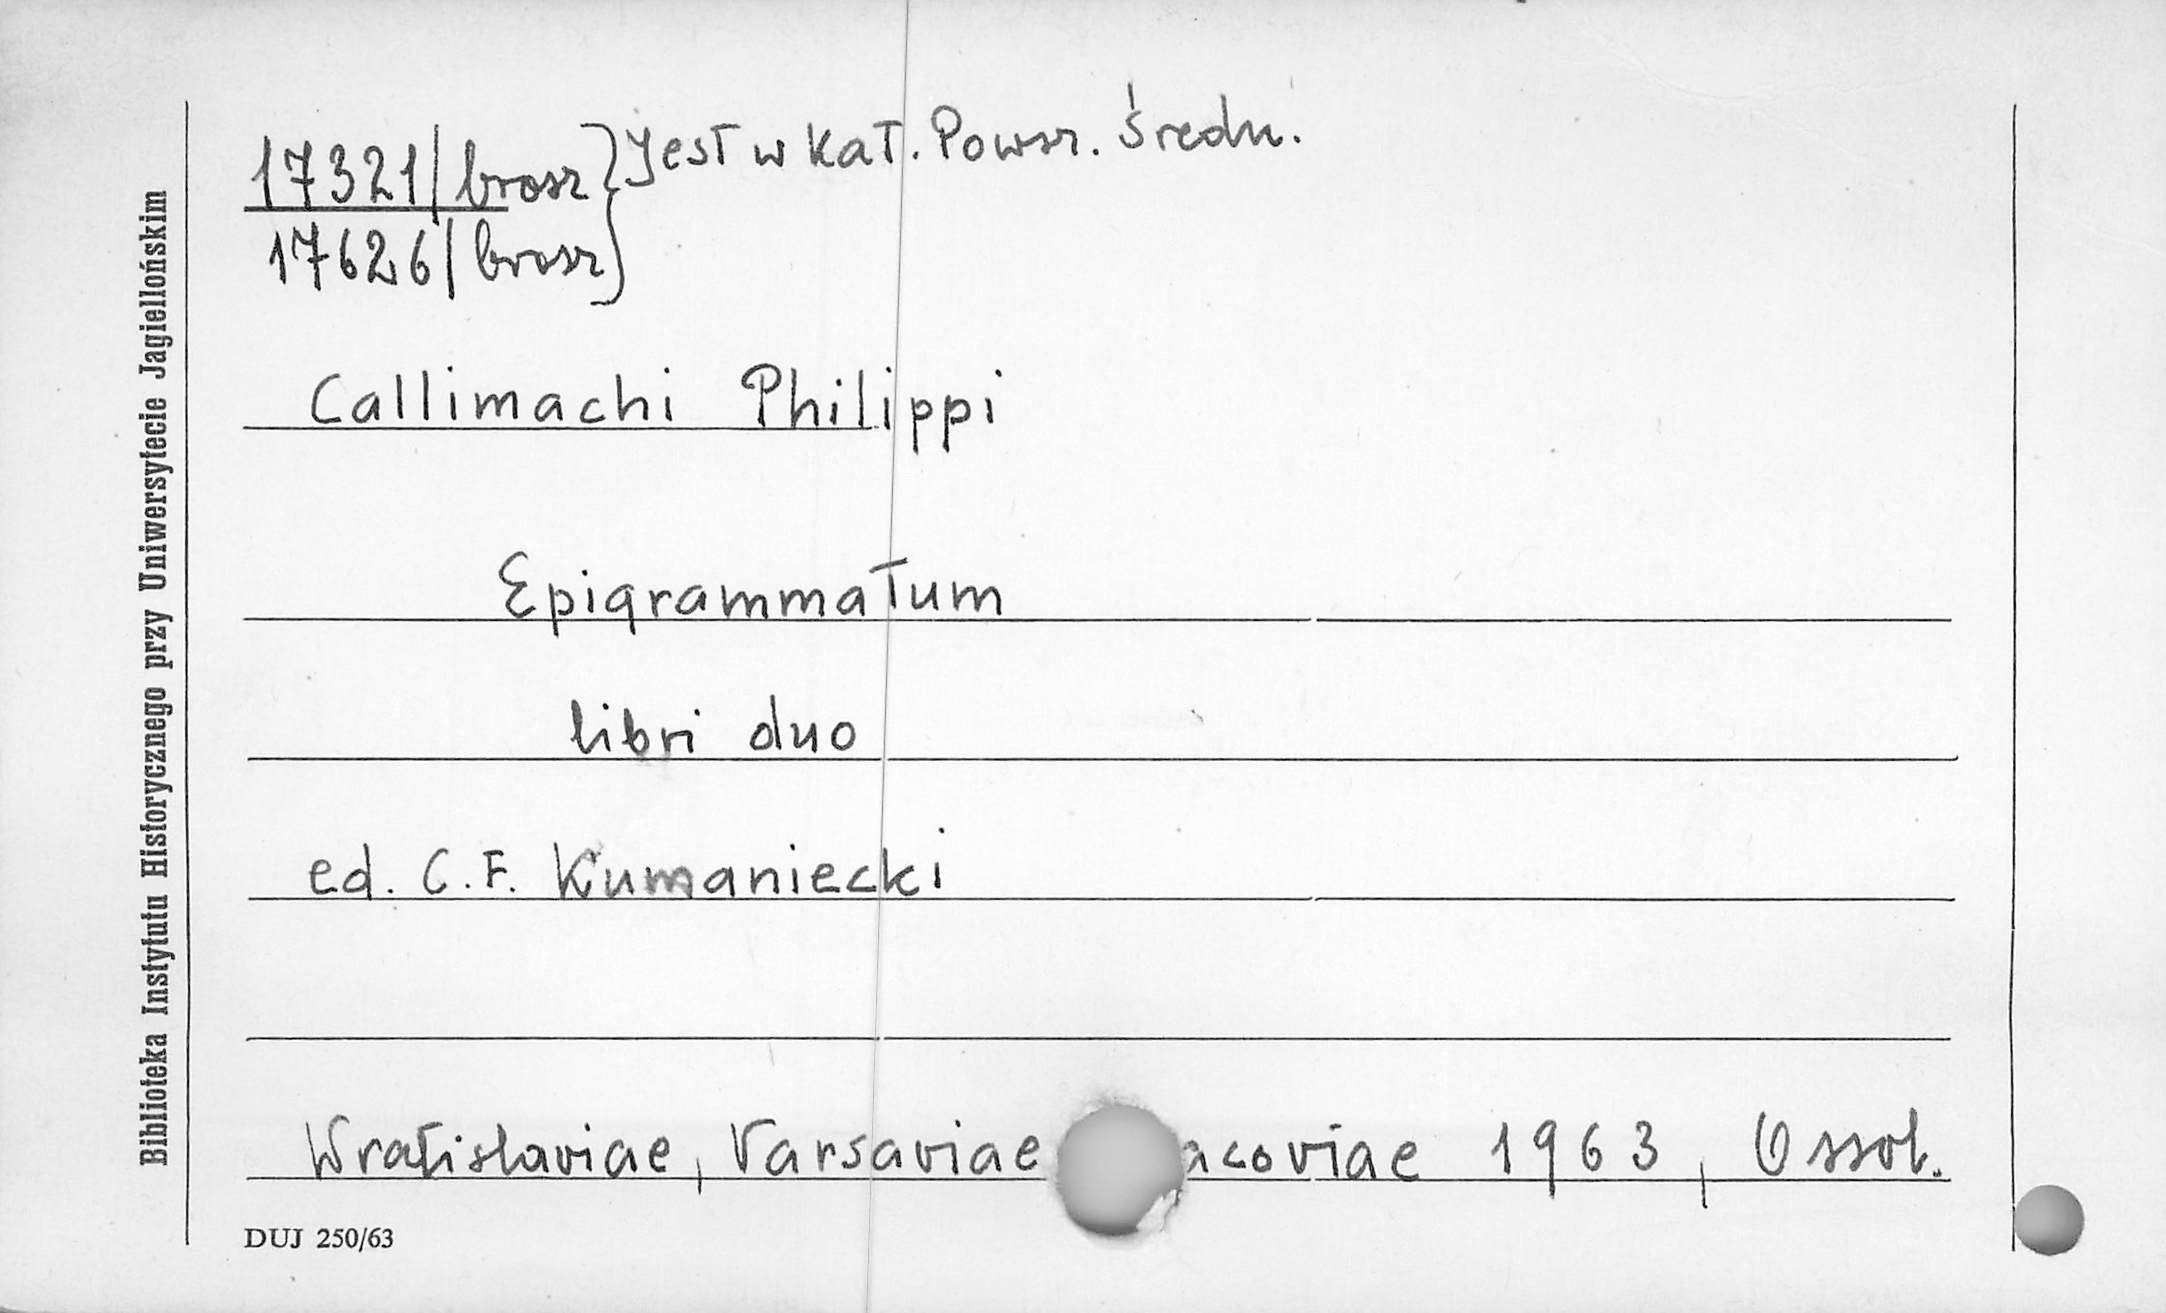 17321/brosz } Jest w kat. Powsz. Średn.
17626/brosz
Callimachi Philippi
Epigrammatum
libri duo
ed. C. F. Kumaniecki
Wratislaviae, Varsaviae acoviae 1963, Ossol.
DUJ 250/63
Biblioteka Instytutu Historycznego przy Uniwersytecie Jagiellońskim